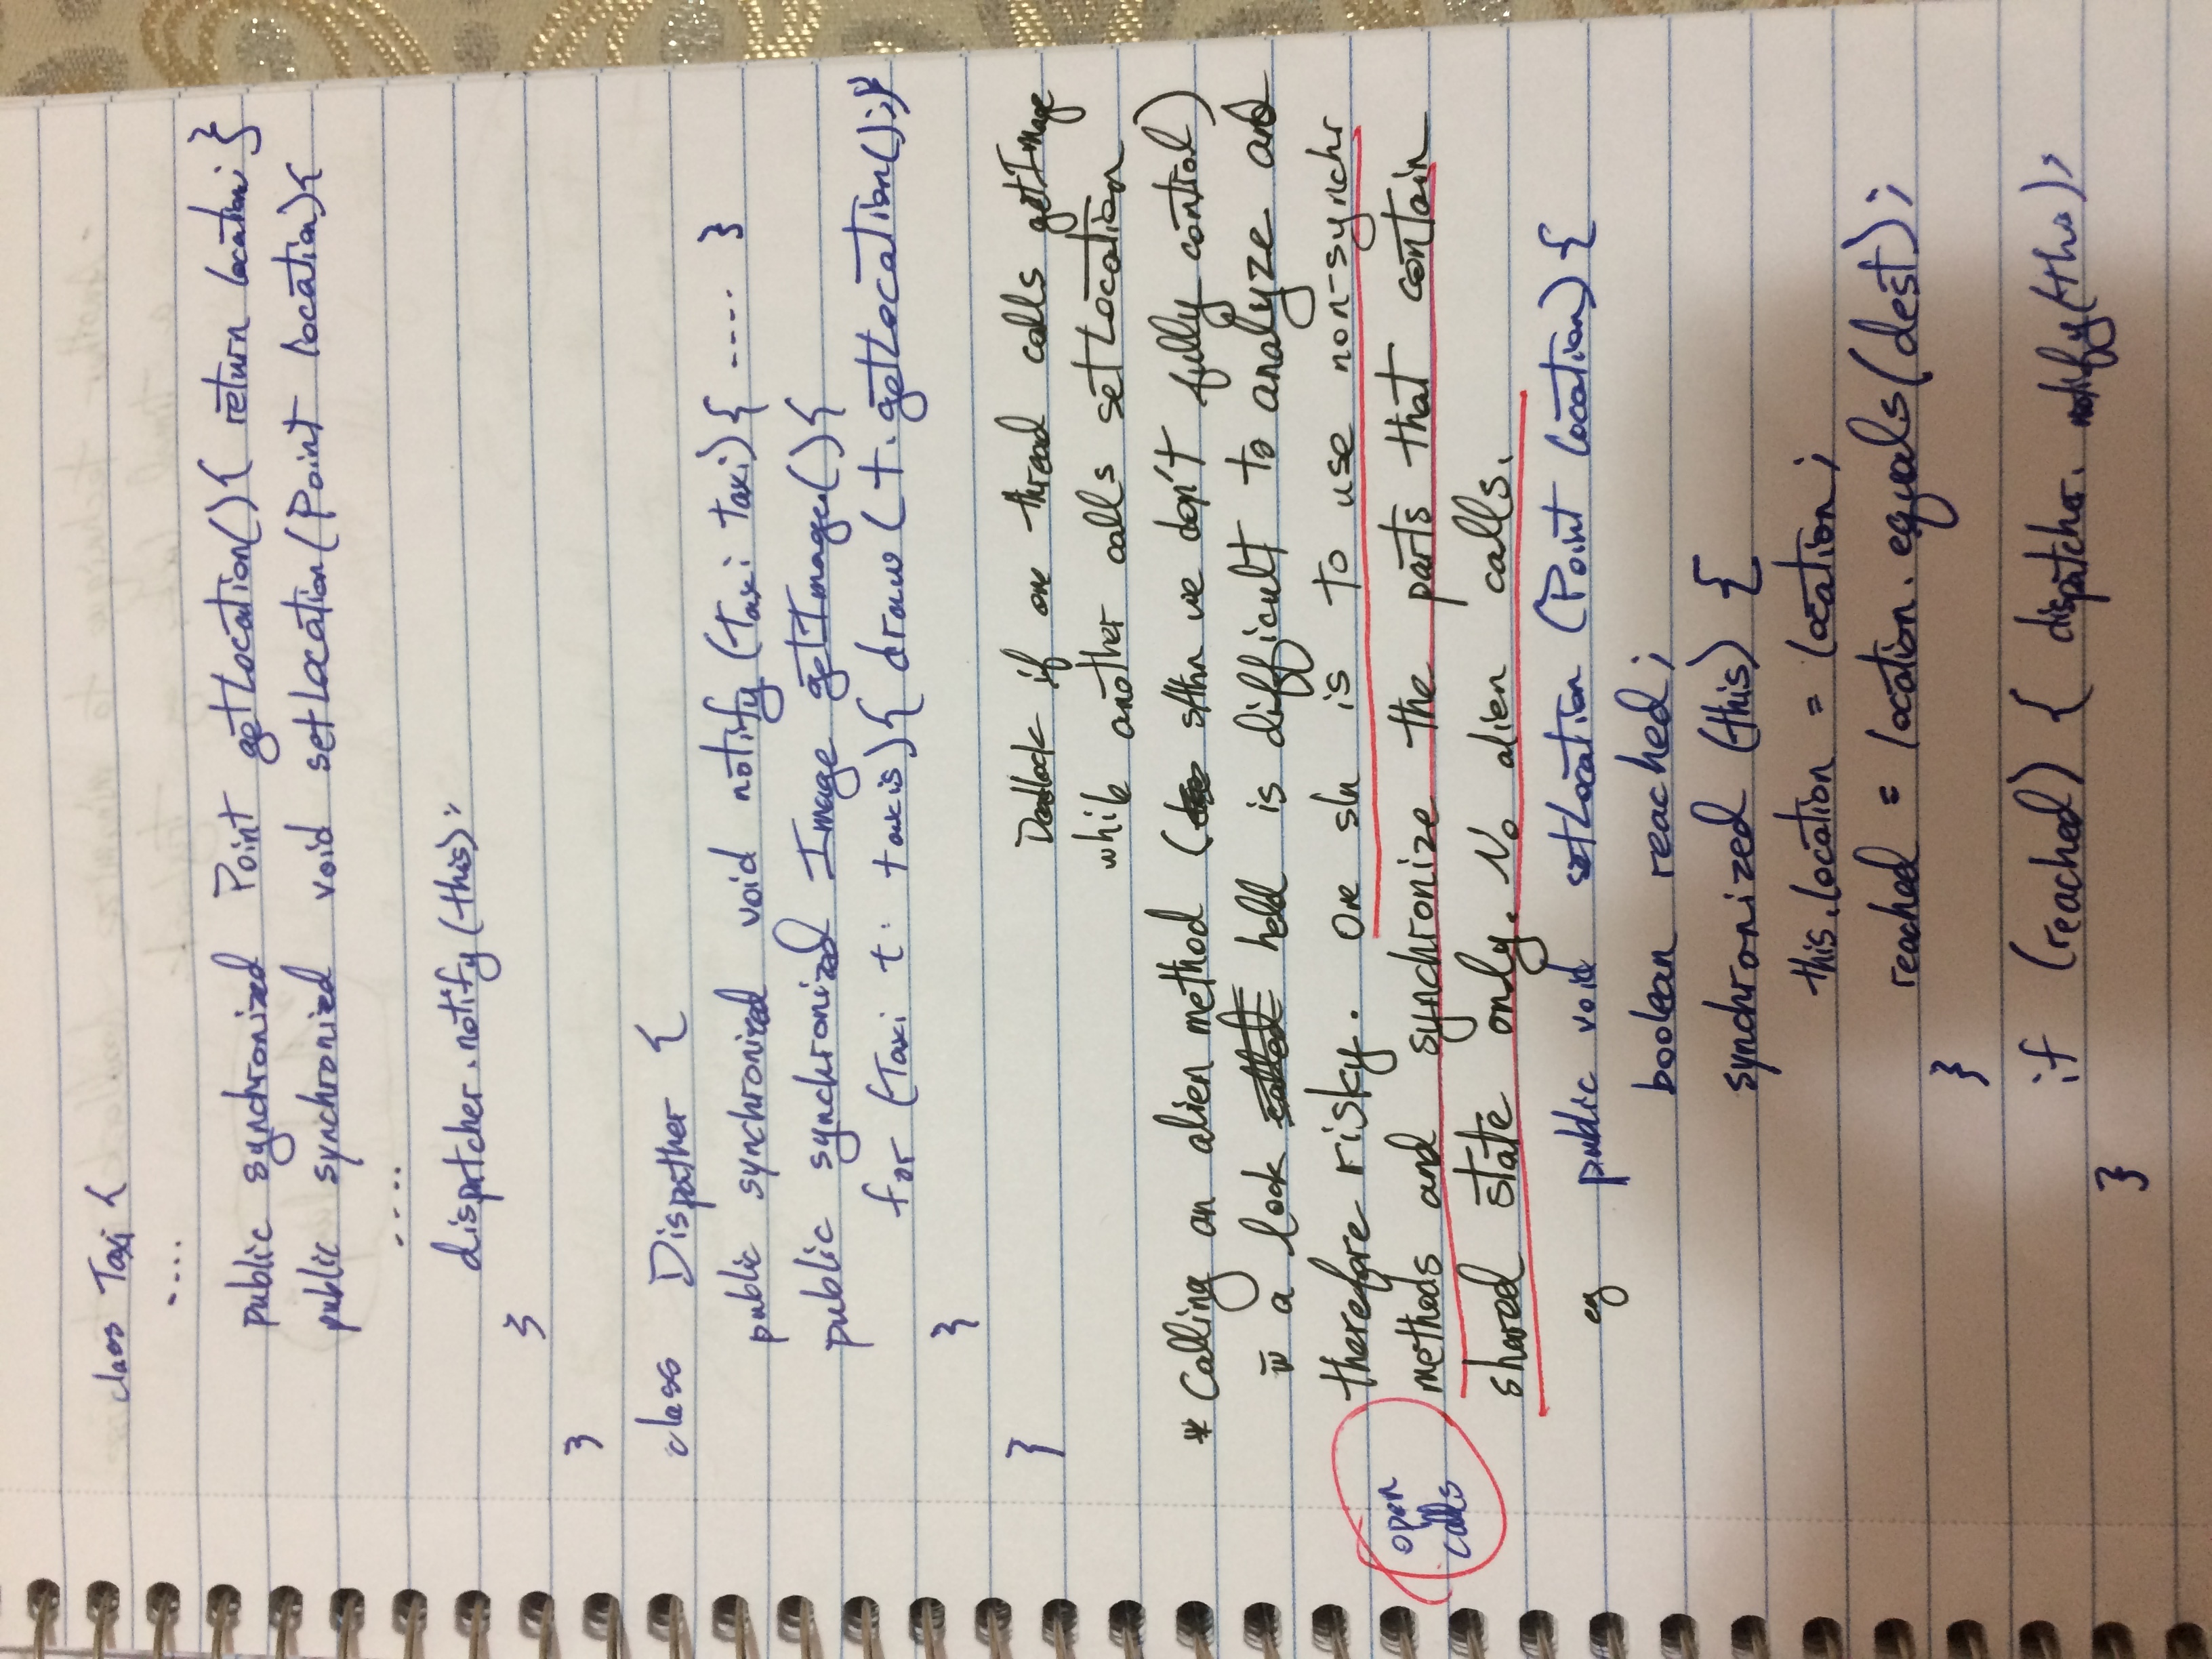 class Taxi {
....
public synchronized Point getLocation(){ return location; }
public synchronized void setLocation(Point location){
....
dispatcher.notify(this);
}
}
class Dispather {
public synchronized void notify (Taxi taxi){ .... }
public synchronized Image getImage(){
for (Taxi t : taxis){ draw ( t.getLocation();}
}
}
Deadlock if one thread calls getImage
while another calls setLocation
* Calling an alien method ( sthn we don't fully control)
w̄ a lock called held is difficult to analyze and
therefore risky. One sln is to use non-synchr
open
calls
methods and synchronize the parts that contain
shared state only. No alien calls.
eg public void setLocation (Point location) {
boolean reached;
synchronized (this) {
this.location = location;
reached = location.equals(dest);
}
if (reached) { dispatcher. notify(this);
}